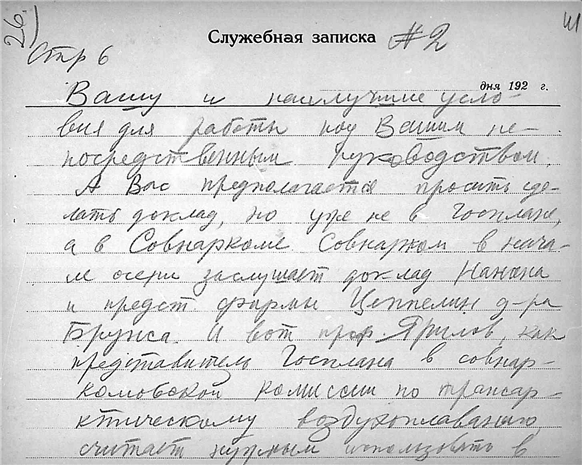 26.)
Служебная записка #2
Стр 6
дня 192 г.
Вашу и наилучшие усло-
вия для работы под Вашим не-
посредственным руководством.
А Вас предполагается просить сде-
лать доклад, но уже не в Госплане,
а в Совнаркоме Совнарком в нача-
ле осени заслушает доклад Нансена
и предст фирмы Цеппелин д-ра
Брунса. И вот проф. Ярилов, как
представитель Госплана в совнар-
комовской комиссии по трансар-
ктическому воздухоплаванию,
считает нужным использовать в